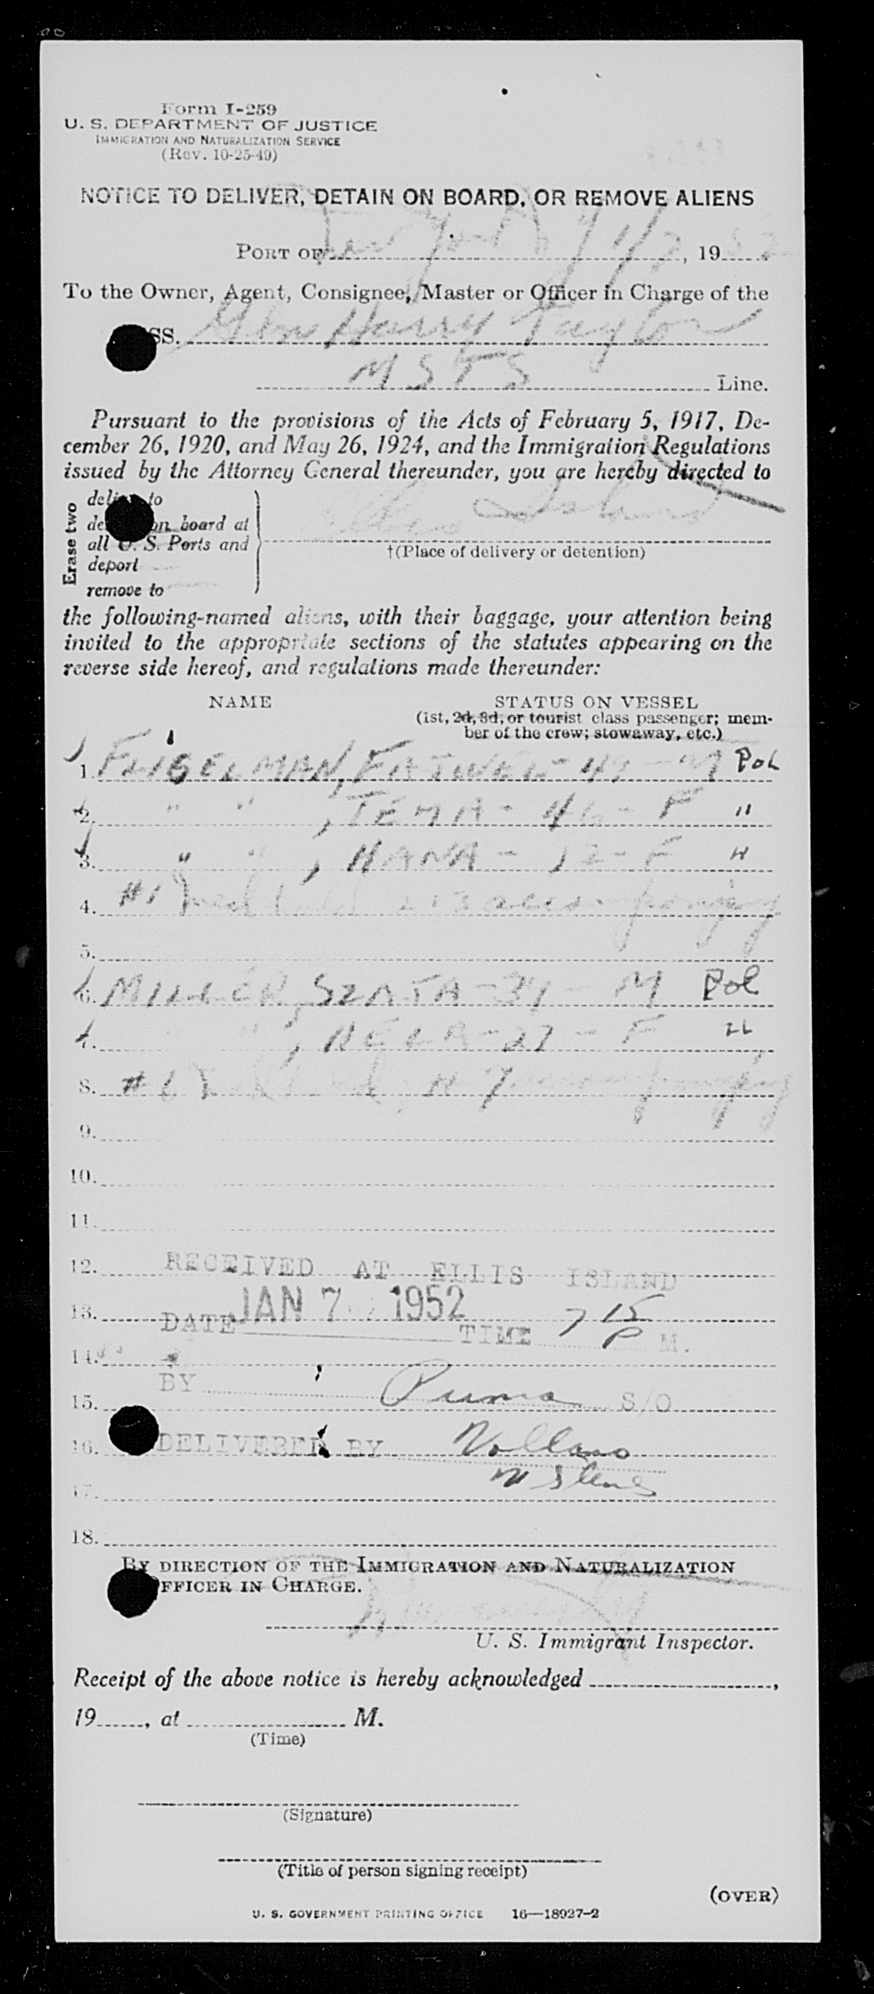 Form I-259
U. S. DEPARTMENT OF JUSTICE
IMMIGRATION AND NATURALIZATION SERVICE
(Rev. 10-25-49)
NOTICE TO DELIVER, DETAIN ON BOARD, OR REMOVE ALIENS
PORT OF New York, N Y 1/7, 19 52
To the Owner, Agent, Consignee, Master or Officer in Charge of the
SS. Gen Harry Taylor
MSTS Line.
Pursuant to the provisions of the Acts of February 5, 1917, De-
cember 26, 1920, and May 26, 1924, and the Immigration Regulations
issued by the Attorney General thereunder, you are hereby directed to
Erase two
deliver to
on board at
all U. S. Ports and
deport
remove to
Ellis Island
†(Place of delivery or detention)
the following-named aliens, with their baggage, your attention being
invited to the appropriate sections of the statutes appearing on the
reverse side hereof, and regulations made thereunder:
NAME STATUS ON VESSEL
(1st, 2d, 3d, or tourist class passenger; mem-
ber of the crew; stowaway, etc.)
1. FLIGELMAN, - M Pol
2. " " , TEMA - 46 - F "
3. " " , HANA - 12 - F "
4. #1 accompanying
5.
6. MILLER, - M Pol
7. " , HELA - 27 - F "
8. #6 # 7 accompanying
9.
10.
11.
12. RECEIVED AT ELLIS ISLAND
13. DATE JAN 7 1952 TIME 7 15 P M.
14.
15. BY Puma S/O
16. DELIVERED BY
17.
18.
BY DIRECTION OF THE IMMIGRATION AND NATURALIZATION
OFFICER IN CHARGE.
U. S. Immigrant Inspector.
Receipt of the above notice is hereby acknowledged ,
19 , at M.
(Time)
(Signature)
(Title of person signing receipt)
(OVER)
U. S. GOVERNMENT PRINTING OFFICE 16—18927-2